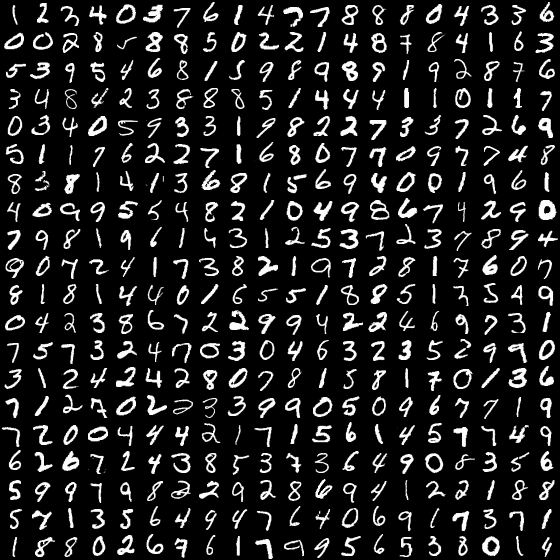 1 2 3 4 0 3 7 6 1 4 7 7 8 8 8 0 4 3 3 6
0 0 2 8 5 8 8 5 0 2 2 1 4 8 7 8 4 1 6 3
5 3 9 5 4 6 8 1 5 9 8 9 8 9 1 9 2 8 7 6
3 4 8 4 2 3 8 8 8 5 1 4 4 4 1 1 0 1 1 7
0 3 4 0 5 9 3 3 1 9 8 2 2 7 3 3 7 2 6 9
5 1 1 7 6 2 2 7 1 6 8 0 7 7 0 9 7 7 4 8
8 3 8 1 4 1 3 6 8 1 5 6 9 4 0 0 1 9 6 1
4 0 9 9 5 5 4 8 2 1 0 4 9 8 6 7 4 2 9 0
7 9 8 1 9 6 1 4 3 1 2 5 3 7 2 3 7 8 9 4
9 0 7 2 4 1 7 3 8 2 1 9 7 2 8 1 7 6 0 7
8 1 8 1 4 4 0 1 6 5 5 1 8 8 5 1 3 5 4 9
0 4 2 3 8 6 7 2 2 9 9 4 2 2 4 6 9 7 3 1
7 5 7 3 2 4 7 0 3 0 4 6 3 2 3 5 2 9 9 0
3 1 2 4 2 4 2 8 0 7 8 1 5 8 1 7 0 1 3 6
7 1 2 7 0 2 2 3 3 9 9 0 5 0 9 6 7 7 1 9
7 2 0 0 4 4 4 2 1 7 1 5 6 1 4 5 7 7 4 9
6 2 6 7 2 4 3 8 5 3 7 3 6 4 9 0 8 3 5 6
5 9 9 7 9 8 2 2 9 2 8 6 9 4 1 2 2 1 8 8
5 7 1 3 5 6 4 9 4 7 6 4 0 6 9 1 7 3 7 1
1 8 8 0 2 6 7 6 1 7 9 9 5 6 5 3 8 0 1 4